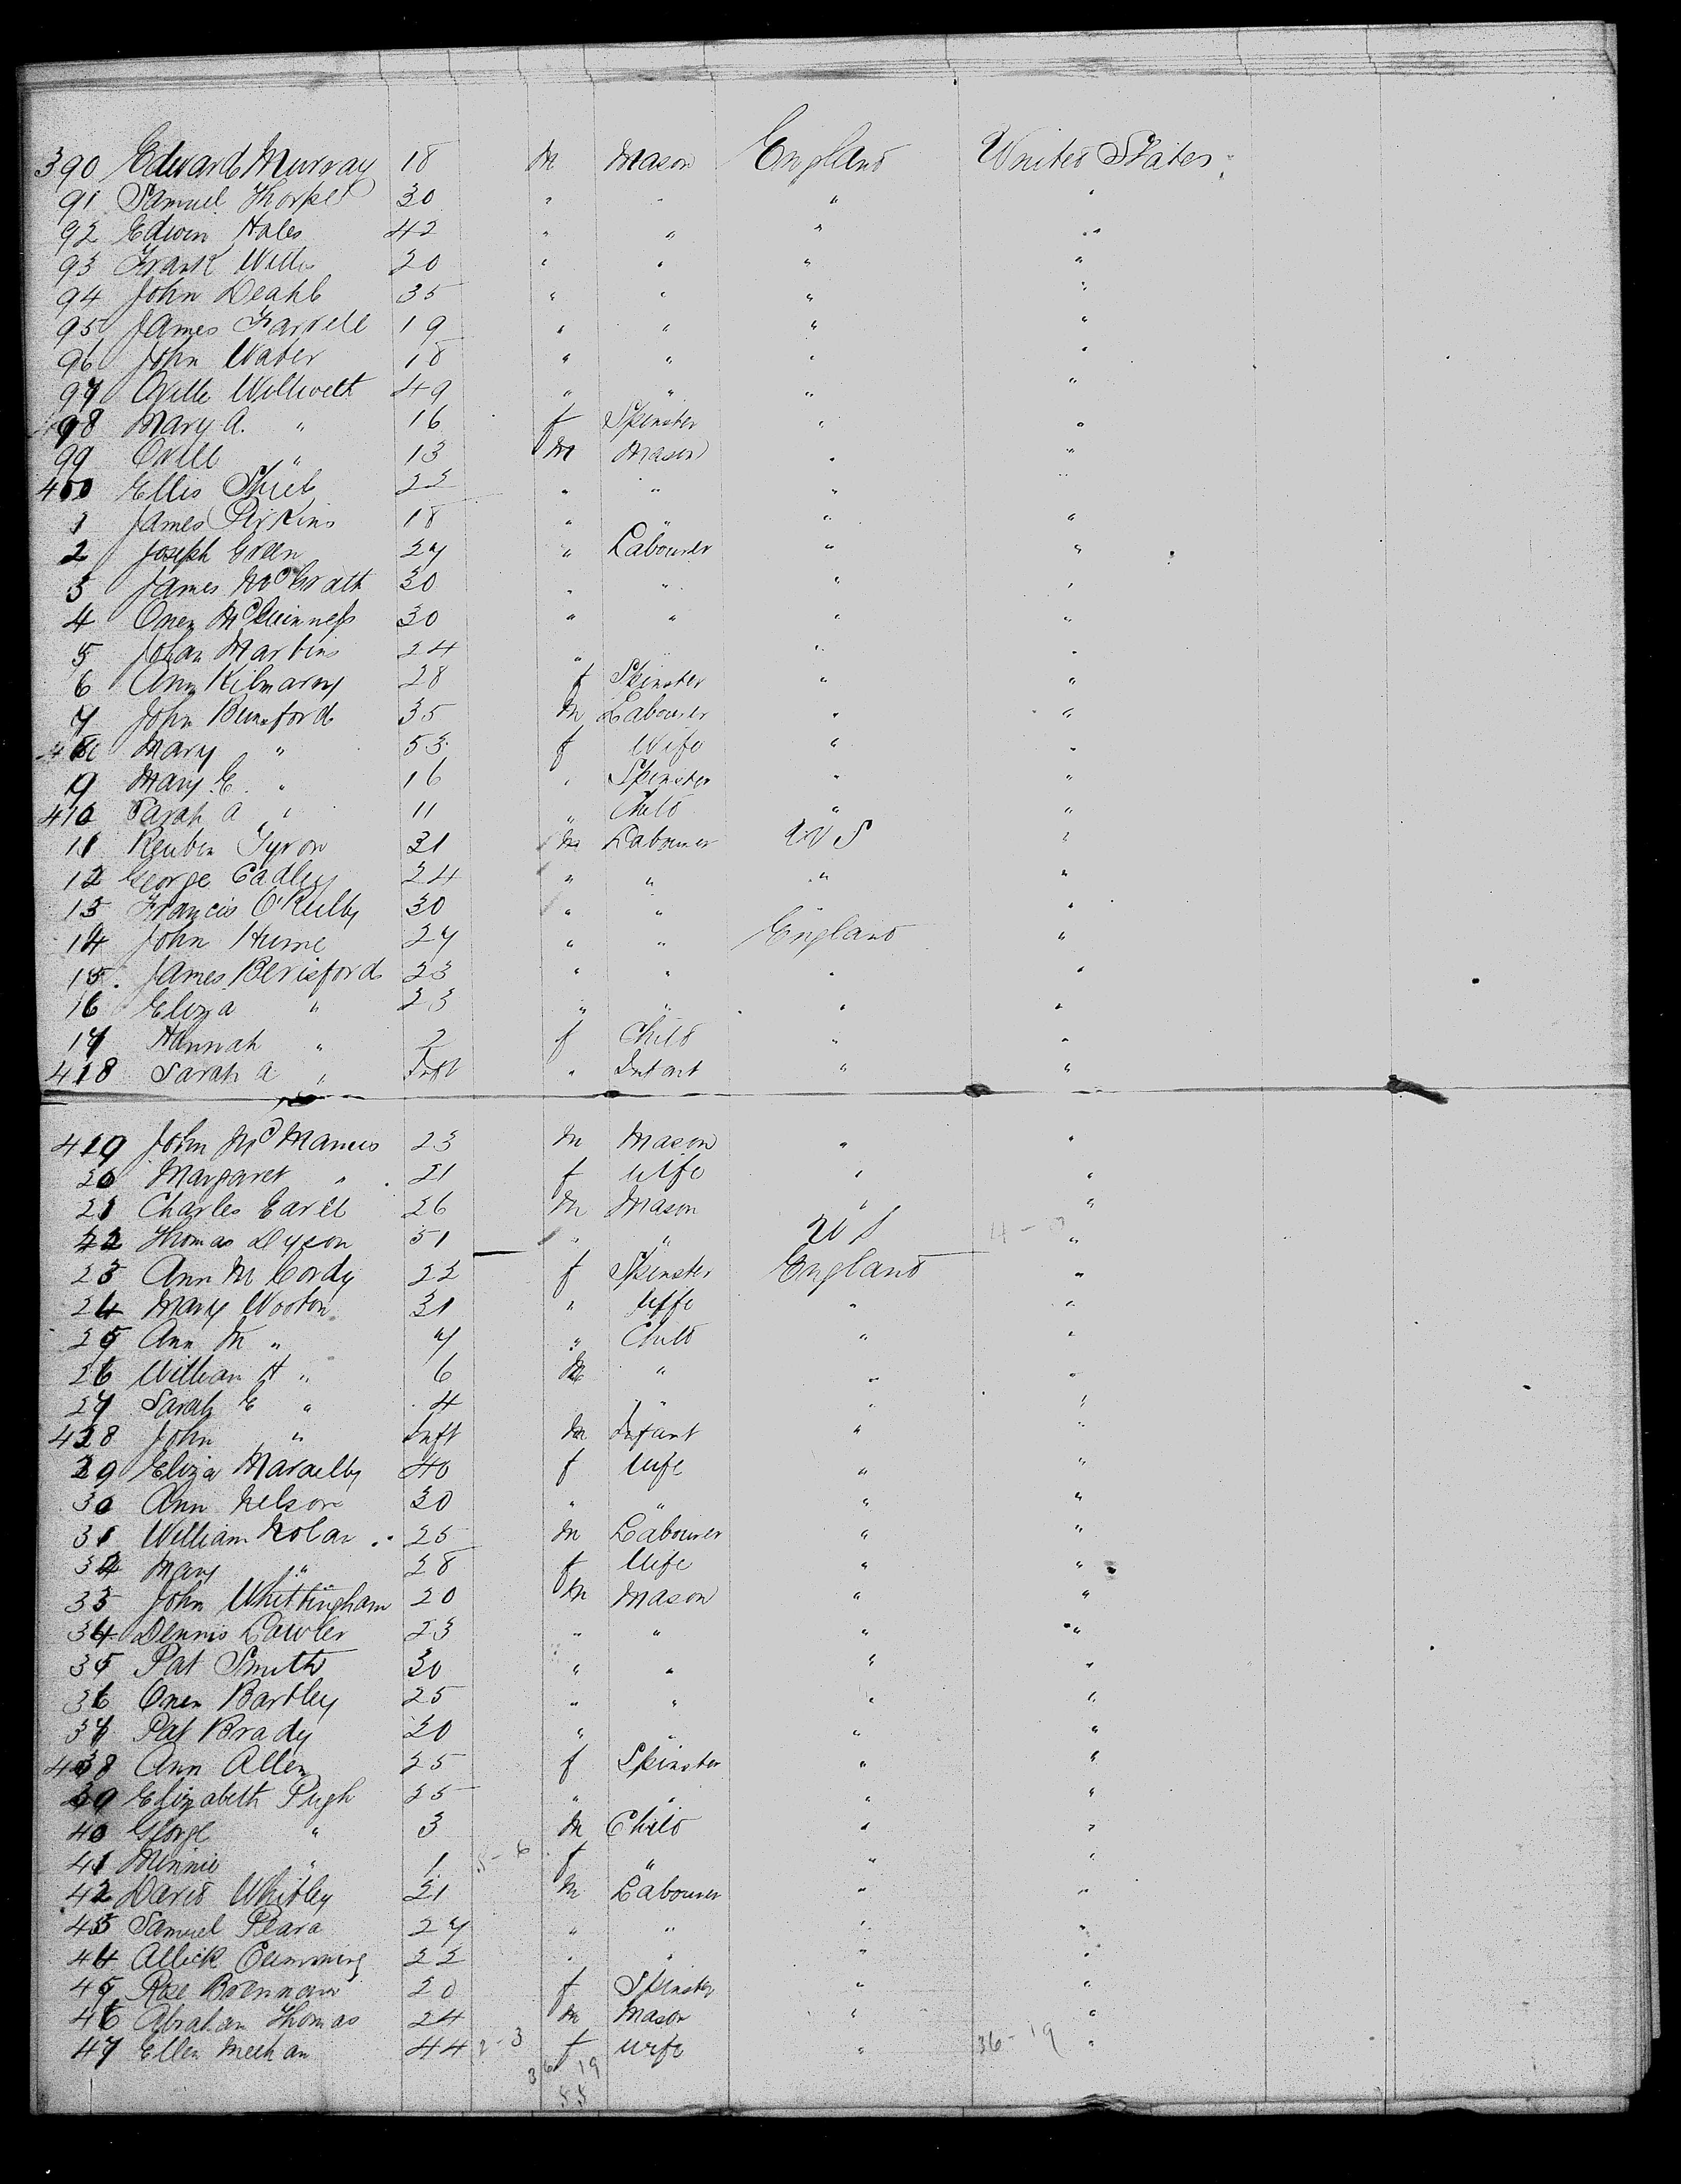 390 Edward Murray 18 M Mason England United States
91 Samuel Thorpe 30 " " " "
92 Edwin Hales 42 " " " "
93 Frank 20 " " " "
94 John 35 " " " "
95 James Farrell 19 " " " "
96 John Water 18 " " " "
97 49 " " " "
98 Mary A. " 16 f Spinster " "
99 " 13 M Mason " "
400 Ellis 22 " " " "
1 James Perkins 18 " " " "
2 Joseph Green 27 " Labourer " "
3 James McGrath 30 " " " "
4 Owen McGuinness 30 " " " "
5 John Martins 24 " " " "
6 Ann 28 f Spinster " "
7 John 35 M Labourer " "
408 Mary " 53 f Wife " "
9 Mary E. " 16 " Spinster " "
410 Sarah A " 11 " Child " "
11 Reuben Tyron 31 M Labourer U S "
12 George Eadley 24 " " " "
13 Francis O'Reilly 30 " " " "
14 John Hume 27 " " England "
15 James Berisford 23 " " " "
16 Eliza " 23 " " " "
17 Hannah " 2 f Child " "
418 Sarah A " Inft " Infant " "
419 John McManus 23 M Mason " "
20 Margaret " 21 f Wife " "
21 Charles Earll 26 M Mason " "
22 Thomas Dyson 51 " " U S "
23 Ann M Cordy 22 f Spinster England "
24 Mary Wooton 31 " Wife " "
25 Ann M " 7 " Child " "
26 William H " 6 M " " "
27 Sarah E " 4 " " " "
428 John " Inft M Infant " "
29 Eliza 40 f Wife " "
30 Ann Nelson 30 " " " "
31 William Nolan 25 M Labourer " "
32 Mary " 28 f Wife " "
33 John Whittingham 20 M Mason " "
34 Dennis Lawler 23 " " " "
35 Pat Smith 30 " " " "
36 Owen Bartley 25 " " " "
37 Pat Brady 20 " " " "
438 Ann Allen 25 f Spinster " "
39 Elizabeth Pugh 25 " " " "
40 George " 3 M Child " "
41 Minnie " 1 f " " "
42 David Whitley 21 M Labourer " "
43 Samuel 27 " " " "
44 Allick Cumming 22 " " " "
45 Rose Brennan 20 f Spinster " "
46 Abraham Thomas 24 M Mason " "
47 Ellen Meehan 44 2-3 f Wife " 36-19 "
36 19
55